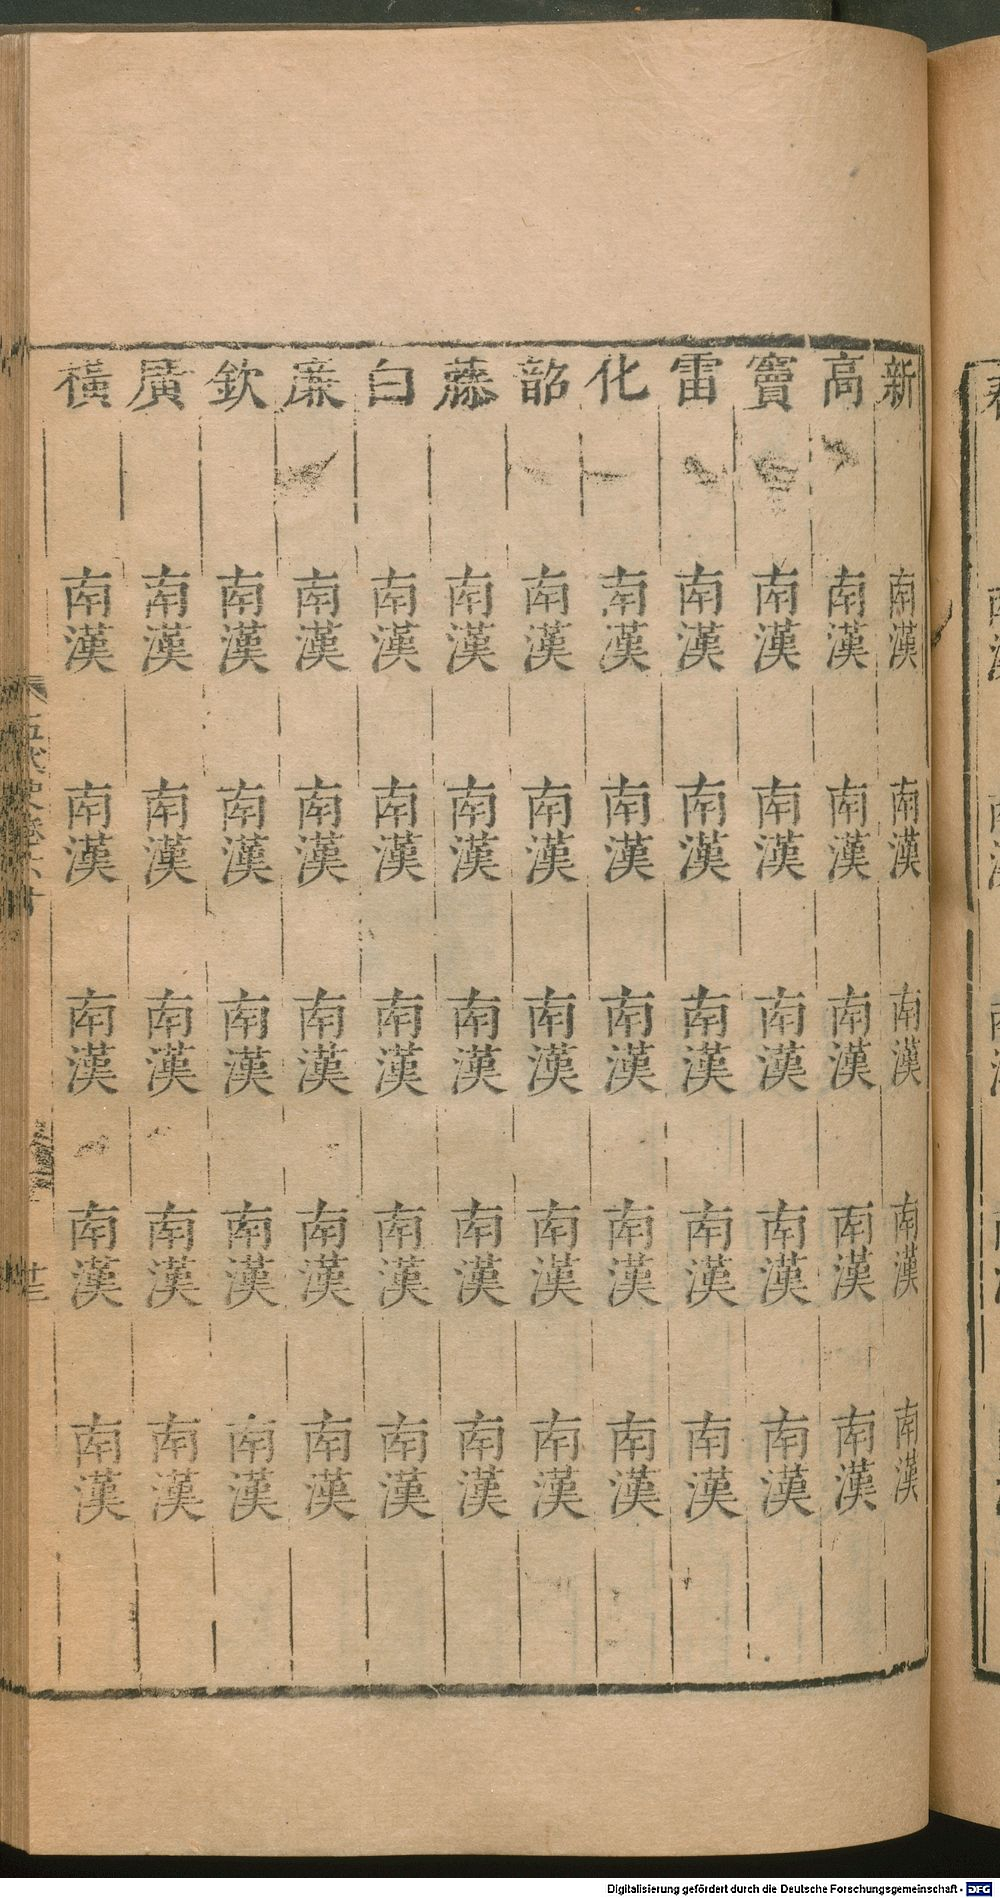 新 南漢 南漢 南漢 南漢 南漢
高 南漢 南漢 南漢 南漢 南漢
竇 南漢 南漢 南漢 南漢 南漢
雷 南漢 南漢 南漢 南漢 南漢
化 南漢 南漢 南漢 南漢 南漢
韶 南漢 南漢 南漢 南漢 南漢
藤 南漢 南漢 南漢 南漢 南漢
白 南漢 南漢 南漢 南漢 南漢
廉 南漢 南漢 南漢 南漢 南漢
欽 南漢 南漢 南漢 南漢 南漢
廣 南漢 南漢 南漢 南漢 南漢
橫 南漢 南漢 南漢 南漢 南漢
五代史卷六十
廿三
Digitalisierung gefördert durch die Deutsche Forschungsgemeinschaft - DFG